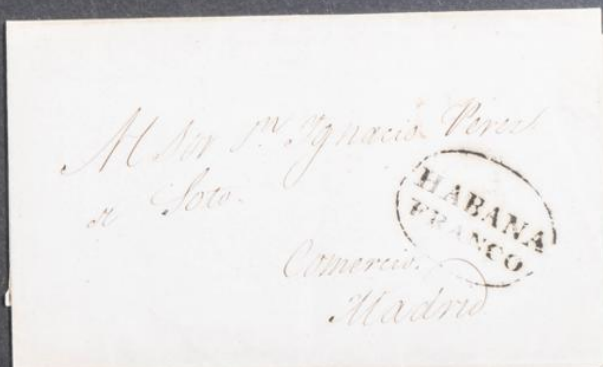 Al Sor Dn Ygnacio Perez
de Soto.
HABANA
FRANCO
Comercio.
Madrid